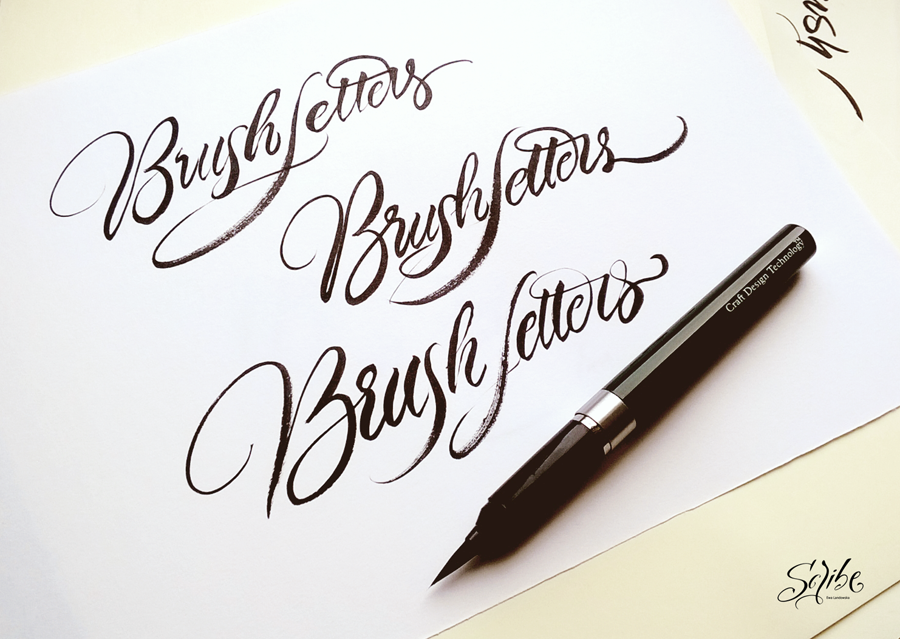 Brush Letters
Brush Letters
Brush Letters
Craft Design Technology
Scribe